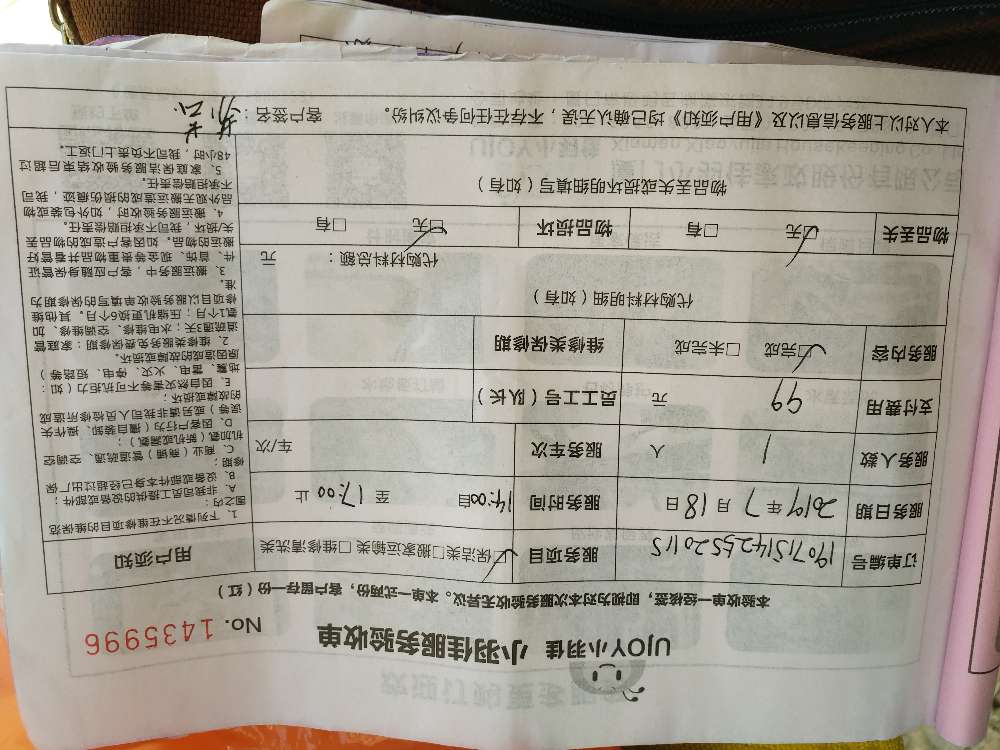 UJOY小羽佳 小羽佳服务验收单 No. 1435996
本验收单一经签,即视为对本次服务验收无异议。本单一式两份,客户留存一份(红)
订单编号 服务项目 ☑保洁类□搬家运输类□维修清洗类
服务日期 2019年7月18日 服务时间 14:00自 至17:00止
服务人数 1 人 服务车次 车/次
支付费用 99 元 员工工号(队长)
服务内容 ☑完成 □未完成 维修类保修期
代购材料明细(如有)
代购材料总额: 元
物品丢失 ☑无 □有 物品损坏 ☑无 □有
物品丢失或损坏明细填写(如有)
用户须知
1、下列情况不在维修项目的维保范
围之内:
A、非我司员工提供的设备或部件;
B、设备或部件本身已经超过出厂保
修期;
C、商业(商铺)管道疏通、空调空
机加氨(新机或漏氨);
D、因客户行为(擅自装卸、操作失
误等)或另请非我司人员检修所造成
的故障或损坏;
E、因自然灾害等不可抗拒力(如:
地震、雷电、火灾、停电、短路等)
原因造成的故障或损坏。
2、维修类服务免费保修期:家庭管
道疏通3天;水电维修、空调维修、加
氨1个月;压缩机更换6个月。其他维
修项目以服务验收单填写的保修期为
准。
3、搬运服务中,客户应随身保管证
件、首饰、现金等贵重物品并看管好
搬运的物品。如因客户造成的物品丢
失、损坏,我司不承担赔偿责任。
4、搬运服务验收时,如外包装或物
品外观无搬运造成的损伤痕迹,我司
不承担赔偿责任。
5、家庭保洁服务验收结束后超过
48小时,我司不负责上门返工。
本人对以上服务信息以及《用户须知》均已确认无误,不存在任何争议纠纷。 客户签名: